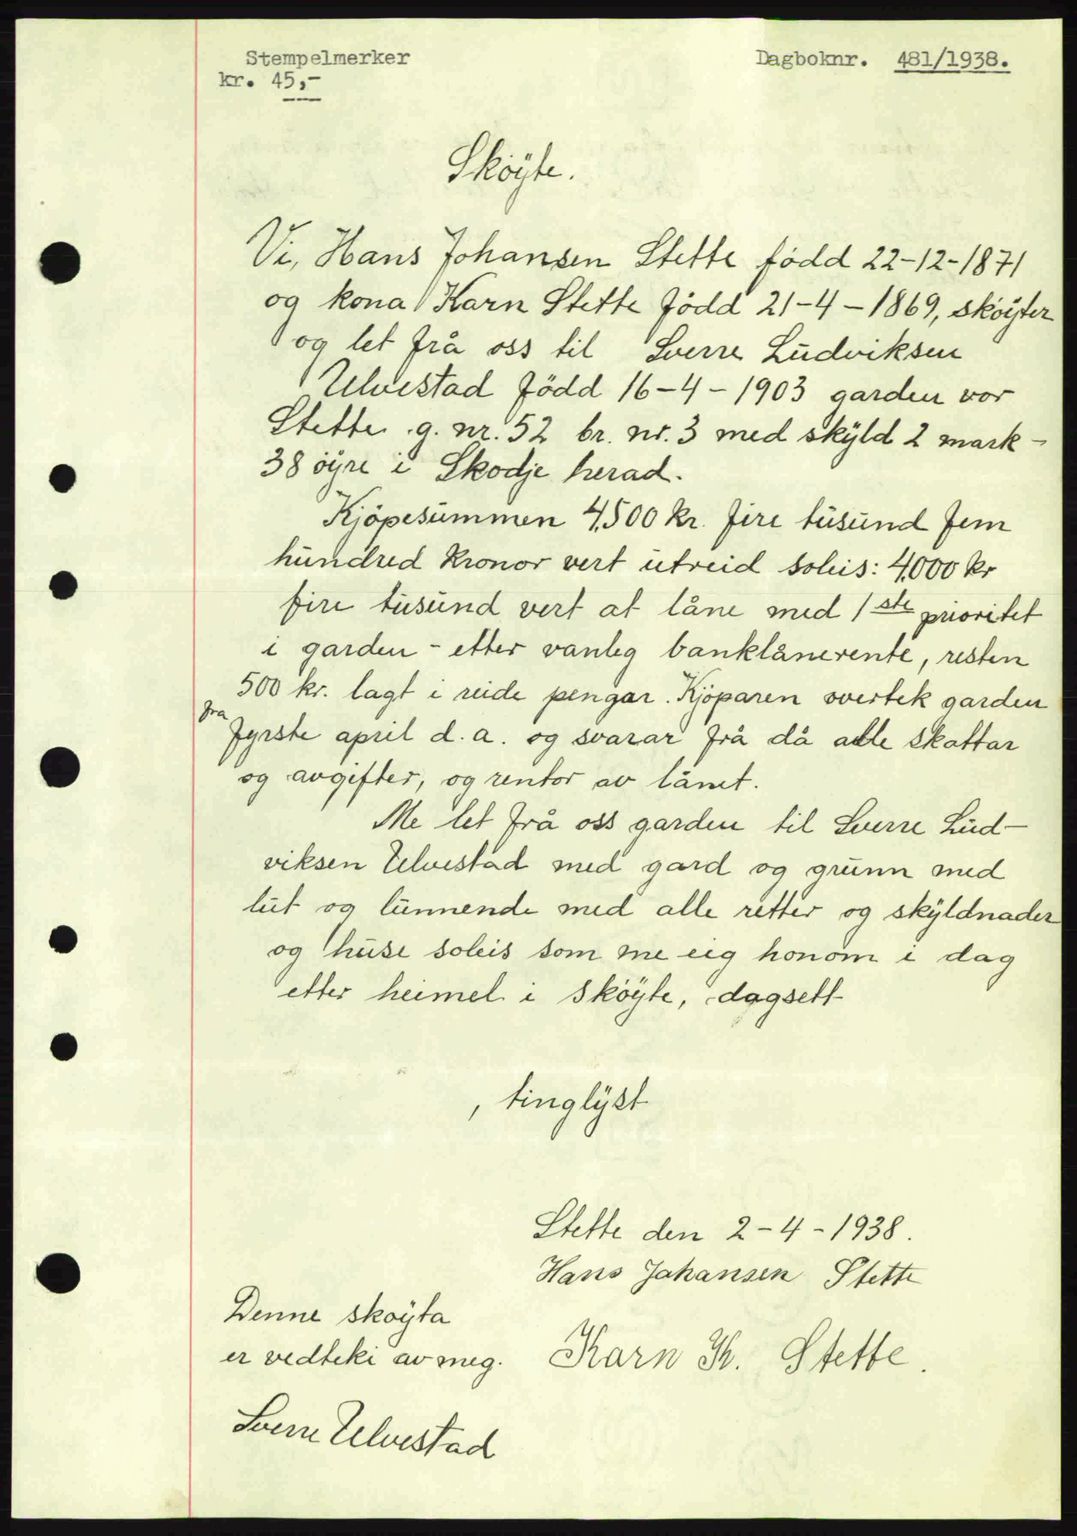 Stempelmerker
kr. 45,-
Dagboknr. 481/1938.
Sköyte.
Vi, Hans Johansen Stette född 22-12-1871
og kona Karn Stette född 21-4-1869, sköyter
og let frå oss til Sverre Ludviksen
Ulvestad född 16-4-1903 garden vor
Stette g. nr. 52 br. nr. 3 med skyld 2 mark -
38 öyre i Skodje herad.
Kjöpesummen 4.500 kr. fire tusund fem
hundred kronor vert utreid soleis: 4.000 kr
fire tusund vert at låne med 1ste prioritet
i garden - etter vanleg banklånerente, resten
500 kr. lagt i reide pengar. Kjöparen overtek garden
fra
fyrste april d.a. og svarar frå då alle skattar
og avgifter, og rentor av lånet.
Me let frå oss garden til Sverre Lud-
viksen Ulvestad med gard og grunn med
lut og lunnende med alle retter og skyldnader
og huse soleis som me eig honom i dag
etter heimel i sköyte, dagsett
, tinglyst
Stette den 2-4-1938.
Hans Johansen Stette
Denne sköyta
er vedteki av meg.
Karn K. Stette.
Sverre Ulvestad